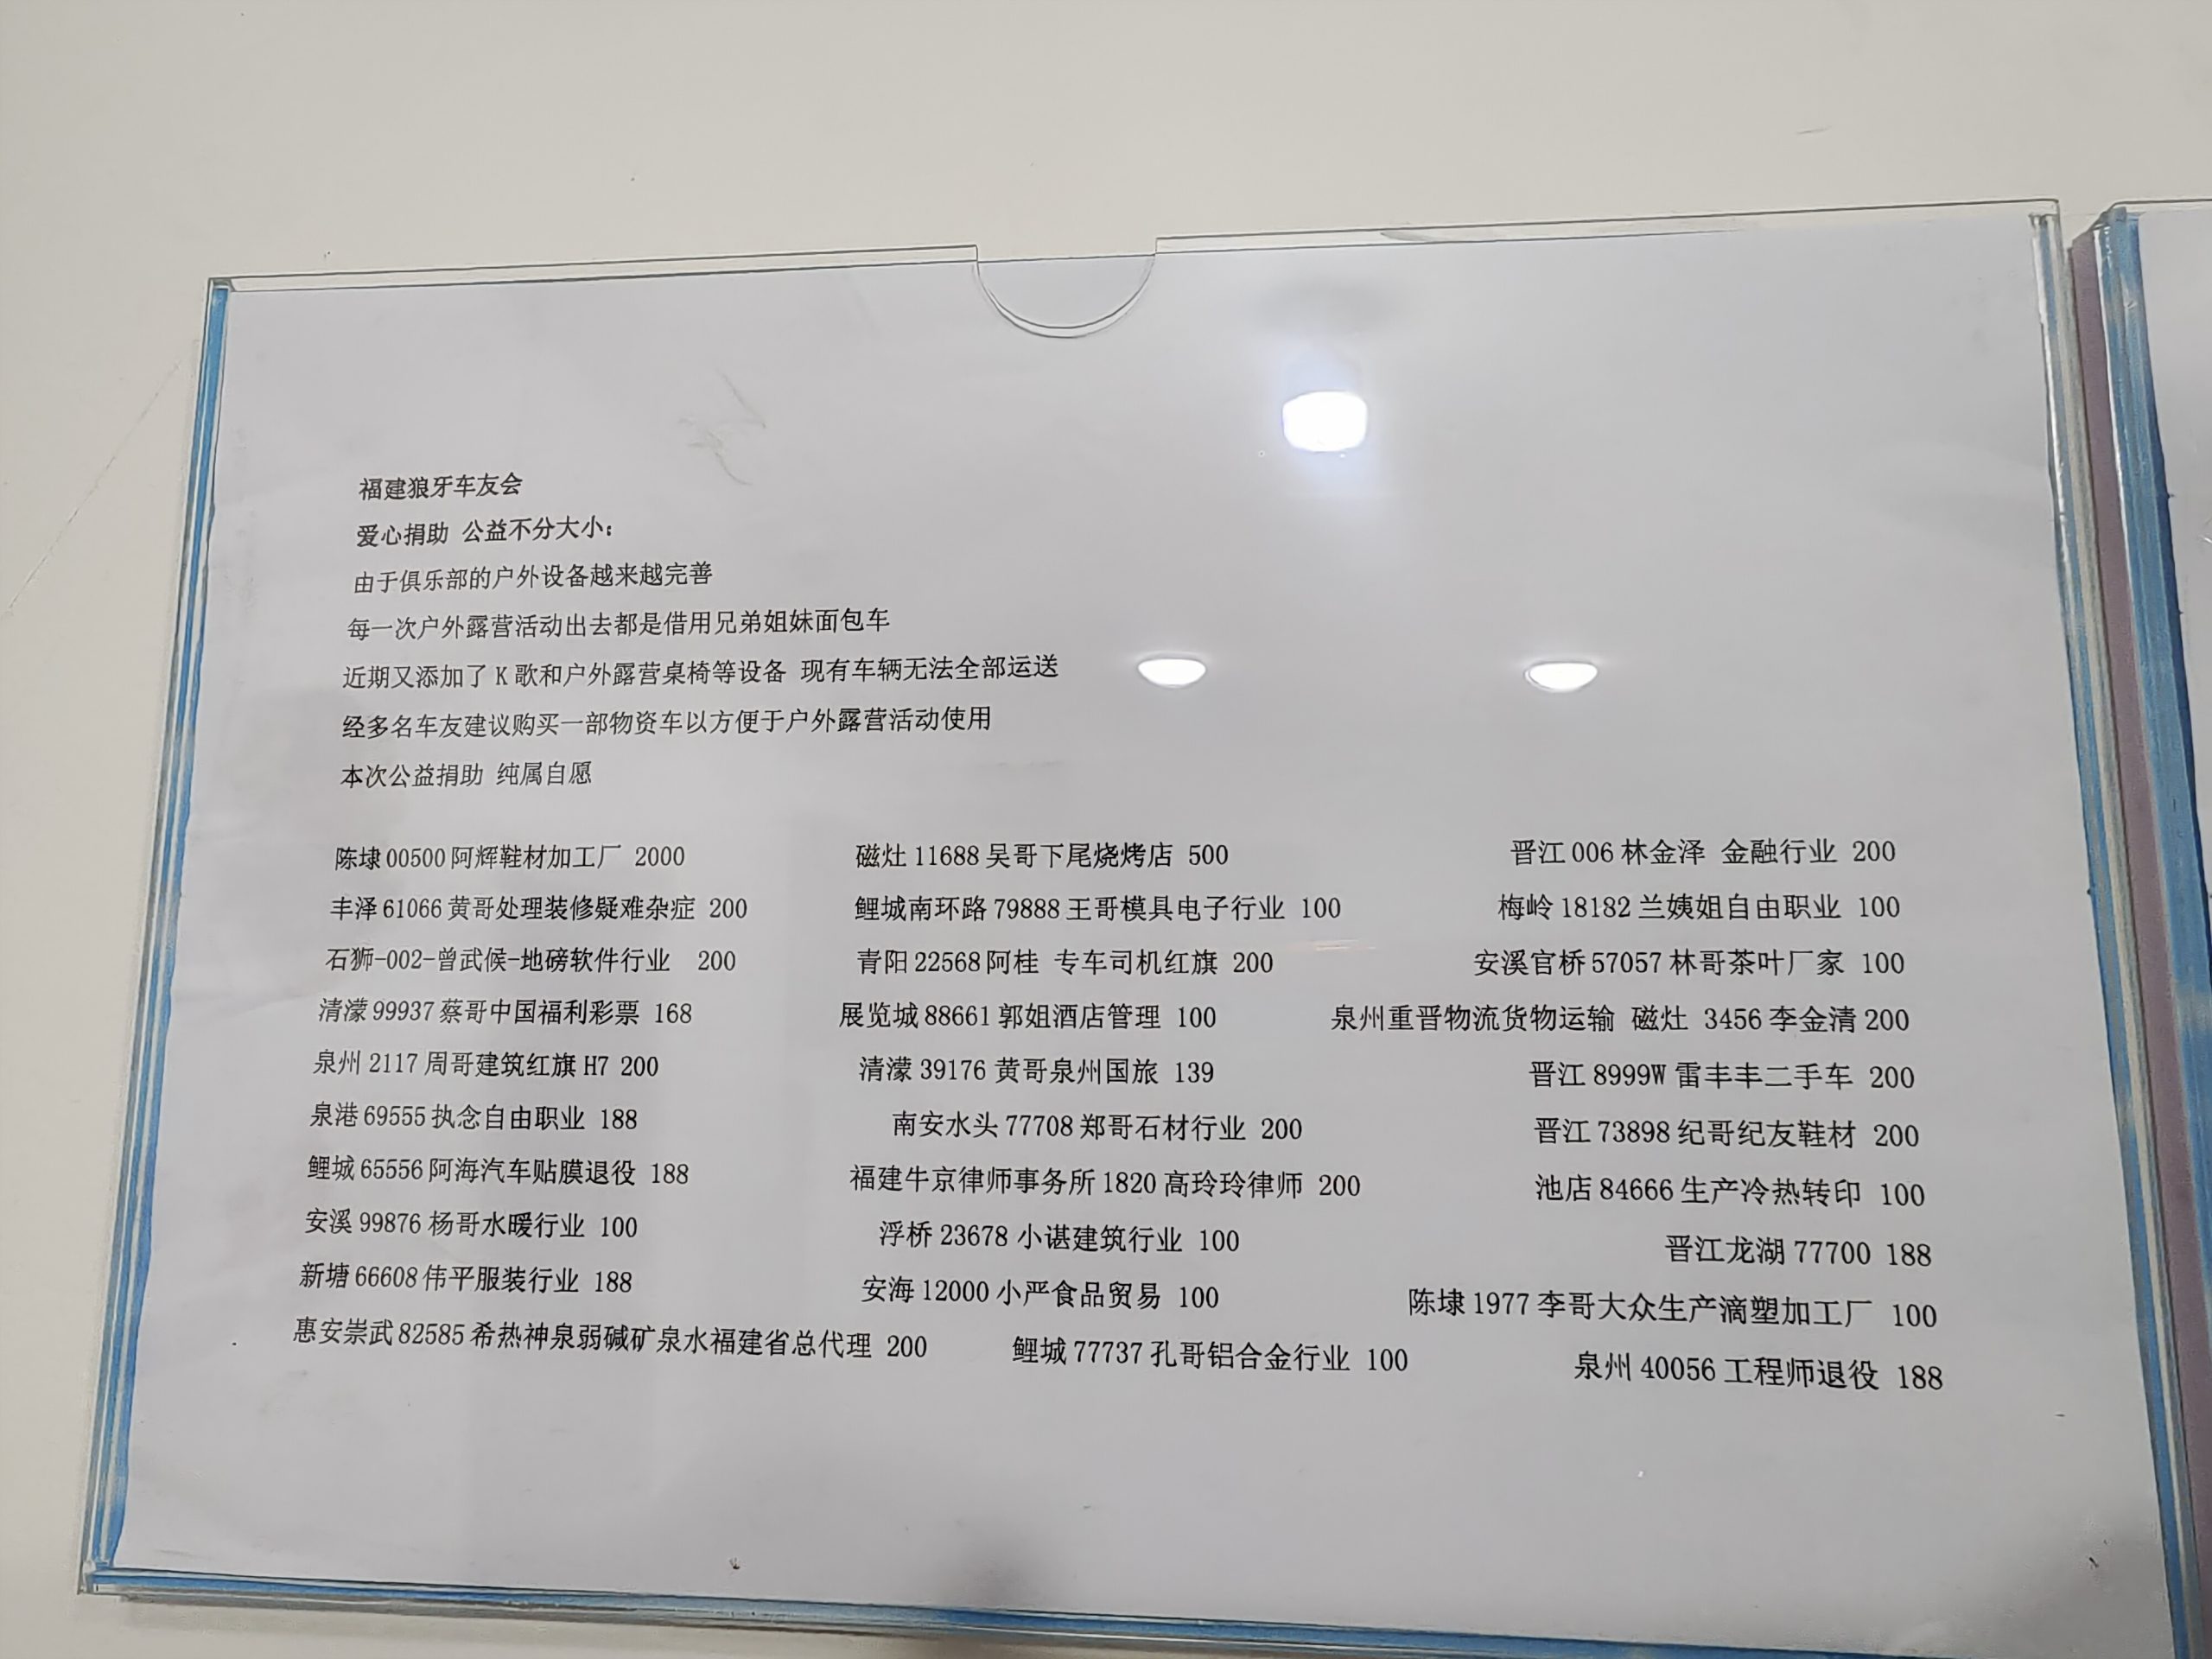 福建狼牙车友会
爱心捐助 公益不分大小：
由于俱乐部的户外设备越来越完善
每一次户外露营活动出去都是借用兄弟姐妹面包车
近期又添加了 K 歌和户外露营桌椅等设备 现有车辆无法全部运送
经多名车友建议购买一部物资车以方便于户外露营活动使用
本次公益捐助 纯属自愿
陈埭 00500 阿辉鞋材加工厂 2000
丰泽 61066 黄哥处理装修疑难杂症 200
石狮-002-曾武候-地磅软件行业 200
清濛 99937 蔡哥中国福利彩票 168
泉州 2117 周哥建筑红旗 H7 200
泉港 69555 执念自由职业 188
鲤城 65556 阿海汽车贴膜退役 188
安溪 99876 杨哥水暖行业 100
新塘 66608 伟平服装行业 188
惠安崇武 82585 希热神泉弱碱矿泉水福建省总代理 200
磁灶 11688 吴哥下尾烧烤店 500
鲤城南环路 79888 王哥模具电子行业 100
青阳 22568 阿桂 专车司机红旗 200
展览城 88661 郭姐酒店管理 100
清濛 39176 黄哥泉州国旅 139
南安水头 77708 郑哥石材行业 200
福建牛京律师事务所 1820 高玲玲律师 200
浮桥 23678 小谌建筑行业 100
安海 12000 小严食品贸易 100
鲤城 77737 孔哥铝合金行业 100
晋江 006 林金泽 金融行业 200
梅岭 18182 兰姨姐自由职业 100
安溪官桥 57057 林哥茶叶厂家 100
泉州重晋物流货物运输 磁灶 3456 李金清 200
晋江 8999W 雷丰丰二手车 200
晋江 73898 纪哥纪友鞋材 200
池店 84666 生产冷热转印 100
晋江龙湖 77700 188
陈埭 1977 李哥大众生产滴塑加工厂 100
泉州 40056 工程师退役 188